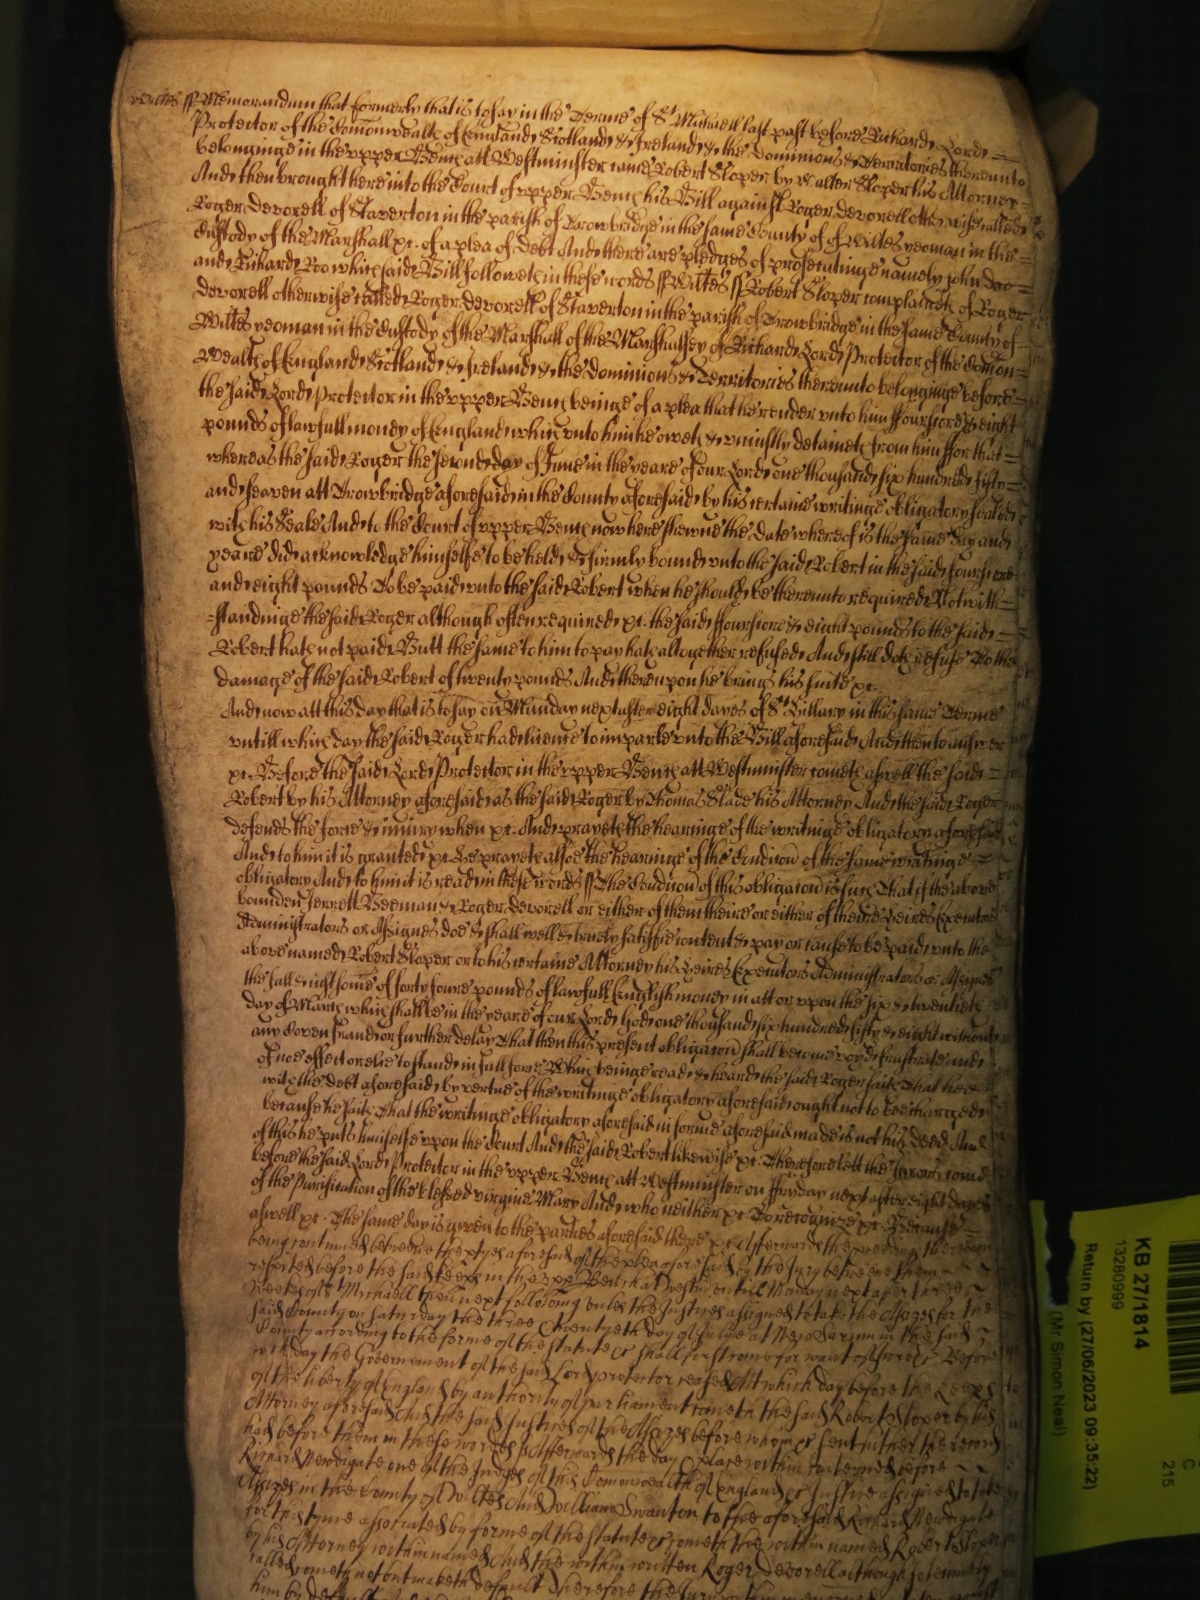 Wiltes ss Memorandum that formerly that is to say in the Terme of St Michaell last past before Richard Lord
Protector of the Comonwealth of England Scotland & Ireland & the Dominions & Territories thereunto
belonginge in the upper Bench att Westminster came Robert Sloper by Walter Sloper his Attorney
And then brought here into the Court of upper Bench his Bill against Roger Deverell otherwise called
Roger Deverell of Staverton in the parish of Trowbridge in the same County of Wiltes yeoman in the
Custody of the Marshall xc. of a plea of debt And there are pledges of prosecutinge namely John Doo
and Richard Roo which said Bill followeth in these words ss Wiltes ss Robert Sloper complaineth of Roger
Deverell otherwise called Roger Deverell of Staverton in the parish of Trowbridge in the same County of
Wiltes yeoman in the Custody of the Marshall of the Marshalsey of Richard Lord Protector of the Comon
Wealth of England Scotland & Ireland & the Dominions & Territories thereunto belonginge before
the said Lord Protector in the upper Bench beinge of a plea that he render unto him ffourscore & eight
pounds of lawfull money of England which unto him he oweth & uniustly detaineth from him ffor that
whereas the said Roger the second day of June in the yeare of our Lord one thousand six hundred fifty
and seaven att Trowbridge aforesaid in the County aforesaid by his certaine writinge obligatory sealed
with his Seale And to the Court of upper Bench now here shewne the date whereof is the same day and
yeare did acknowledge himselfe to be held & firmly bound unto the said Robert in the said fourscore
and eight pounds To be paid unto the said Robert when he should be thereunto required Notwith
standinge the said Roger although often required xc. the said ffourscore & eight pounds to the said
Robert hath not paid Butt the same to him to pay hath altogether refused And still doth refuse To the
damage of the said Robert of twenty pounds And thereupon he brings his suite xc.
And now att this day that is to say on Munday next after eight dayes of St Hillary in this same Terme
untill which day the said Roger had licence to imparle unto the Bill aforesaid And then to answer
xc. Before the said Lord Protector in the upper Bench att Westminster cometh aswell the said
Robert by his Attorney aforesaid as the said Roger by Thomas Slade his Attorney And the said Roger
defends the force & iniury when xc. And prayeth the hearinge of the writinge obligatory aforesaid
And to him it is granted xc. He prayeth alsoe the hearinge of the Condicon of the same writinge
obligatory And to him it is read in these words ss The Condicon of this obligacon is such That if the above
bounden Jerrett Beeman & Roger Deverell or either of them theire or either of theire Heires Executors
Administrators or Assignes doe & shall well & truely satisfie content & pay or cause to be paid unto the
above named Robert Sloper or to his certaine Attorney his Heires Executors Administrators or Assignes
the full & iust some of forty foure pounds of lawfull English money in att or upon the six & twentieth
day of March which shalbe in the yeare of our Lord God one thousand six hundred fifty & eight without
any Coven fraud or further delay That then this present obligacon shall become voyd frustrate and
of noe effect or else to stand in full force Which beinge read & heard the said Roger saith That hee
with the debt aforesaid by vertue of the writinge obligatory aforesaid ought not to bee charged
because he saith That the writinge obligatory aforesaid in forme aforesaid made is not his Deed And
of this he puts himselfe upon the Court And the said Robert likewise xc. Therefore lett the Jurors come
before the said Lord Protector in the upper Bench att Westminster on ffryday next after eight dayes
of the Purification of the blessed virgine Mary And who neither xc To recognize xc. Because
aswell xc. The same day is given to the parties aforesaid there xc Afterwards the proceedings thereupon
being continued betweene the ptyes aforesaid of the plea aforesaid by the Jury betweene them
respited before the said keeps in the upp Bench at Westm untill Monday next after three
weekes of St Michaell then next following unles the Justices assigned to take the Assizes for the
said County on Saturday the three & twentyeth day of July at New Sarum in the said
County according to the forme of the statute xc shall first come for want of Jurors xc Before
wch day the Government of the said Lord protector ceased Att which day before the Keeps
of the liberty of England by authority of parliament cometh the said Robert Sloper by his
Attorney aforesaid And the said Justices of the Assizes before whom xc sent hither the record
had before them in these words ss Afterwards the day & place within conteyned before
Richard Newdigate one of the Judges of this Comonwealth of England xc Justice assigned to take
Assizes in the County of Wiltes And William Swanton to the aforesaid Richard Newdigate
for this tyme associated by forme of the statute xc cometh the within named Robert Sloper
by his Attorney within named And the within written Roger Deverell although solemnely
called cometh not but maketh default Therefore the Jury
him by def
KB 27/1814
13280999
Return by (27/06/2023 09:35:22)
(Mr Simon Neal)
C
215